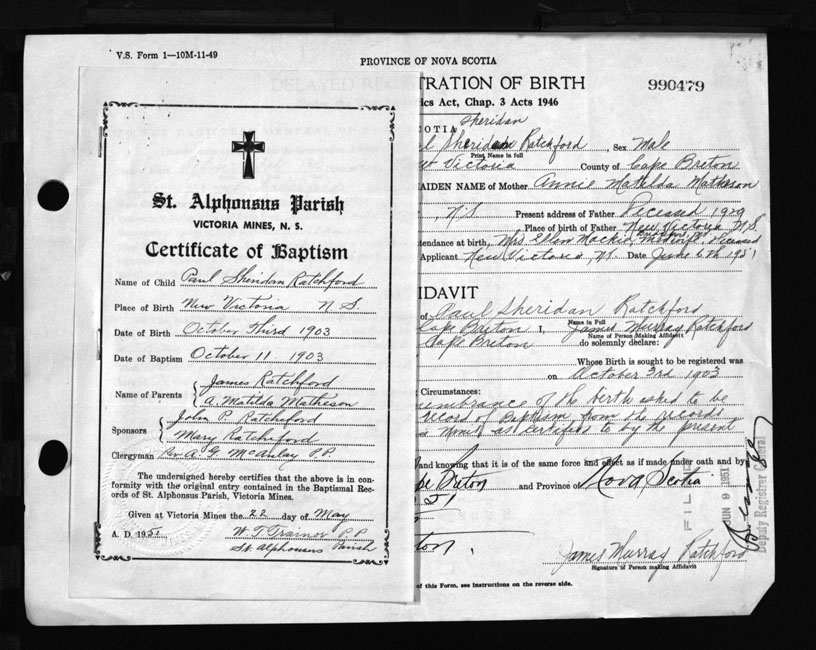 V.S. Form 1—10M-11-49
PROVINCE OF NOVA SCOTIA
TRATION OF BIRTH
990479
ics Act, Chap. 3 Acts 1946
St. Alphonsus Parish
VICTORIA MINES, N. S.
Certificate of Baptism
Name of Child Paul Sheridan Ratchford
Place of Birth New Victoria N S
Date of Birth October Third 1903
Date of Baptism October 11 1903
Name of Parents { James Ratchford
A. Matilda Matheson
Sponsors { John P. Ratchford
Mary Ratchford
Clergyman Rev A. G. McAulay P.P.
The undersigned hereby certifies that the above is in con-
formity with the original entry contained in the Baptismal Rec-
ords of St. Alphonsus Parish, Victoria Mines.
Given at Victoria Mines the 22 day of May
A. D. 1951 W T Trainor P.P.
St. Alphonsus Parish
SCOTIA Sheridan
Sheridan Ratchford, Sex Male
Print Name in full
w Victoria County of Cape Breton
AIDEN NAME of Mother Annie Matilda Matheson
, N.S Present address of Father Deceased 1929
Place of birth of Father New Victoria N.S.
tendance at birth, Mrs Ellen deceased
Applicant New Victoria, N.S. Date June 6th 1951
IDAVIT
of Paul Sheridan Ratchford
Name in Full
Cape Breton I, James Murray Ratchford
Name of Person Making Affidavit
Cape Breton do solemnly declare:
Whose Birth is sought to be registered was
on October 3rd 1903
Circumstances:
embrance of the birth asked to be
record of Baptism from the records
as certified to by the present
and knowing that it is of the same force and effect as if made under oath and by
pe Breton and Province of Nova Scotia
51
ton.
FILED
JUN 9 1951
Deputy Registrar General
James Murray Ratchford
Signature of Person making Affidavit
of this Form, see instructions on the reverse side.